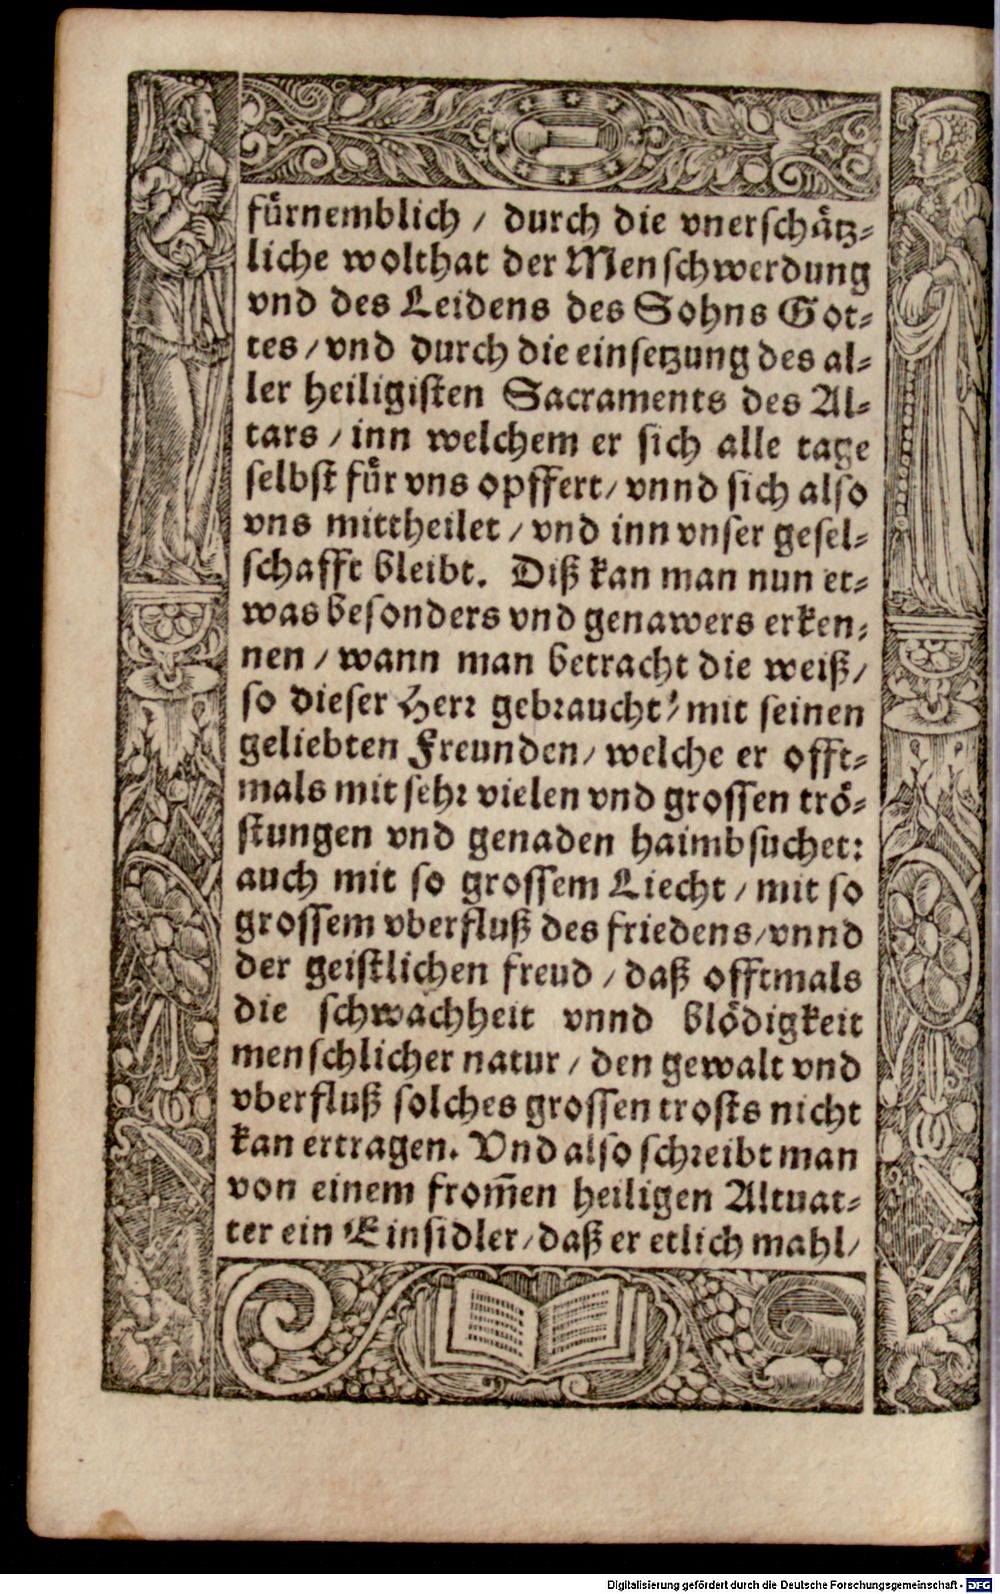 fürnemblich / durch die vnerschätz-
liche wolthat der Menschwerdung
vnd des Leidens des Sohns Got-
tes / vnd durch die einsetzung des al-
ler heiligisten Sacraments des Al-
tars / inn welchem er sich alle tage
selbst für vns opffert / vnnd sich also
vns mittheilet / vnd inn vnser gesel-
schafft bleibt. Diß kan man nun et-
was besonders vnd genawers erken-
nen / wann man betracht die weiß /
so dieser Herr gebraucht / mit seinen
geliebten Freunden / welche er offt-
mals mit sehr vielen vnd grossen trö-
stungen vnd genaden haimbsuchet:
auch mit so grossem Liecht / mit so
grossem vberfluß des friedens / vnnd
der geistlichen freud / daß offtmals
die schwachheit vnnd blödigkeit
menschlicher natur / den gewalt vnd
vberfluß solches grossen trosts nicht
kan ertragen. Vnd also schreibt man
von einem from̄en heiligen Altuat-
ter ein Einsidler / daß er etlich mahl /
Digitalisierung gefördert durch die Deutsche Forschungsgemeinschaft - DFG